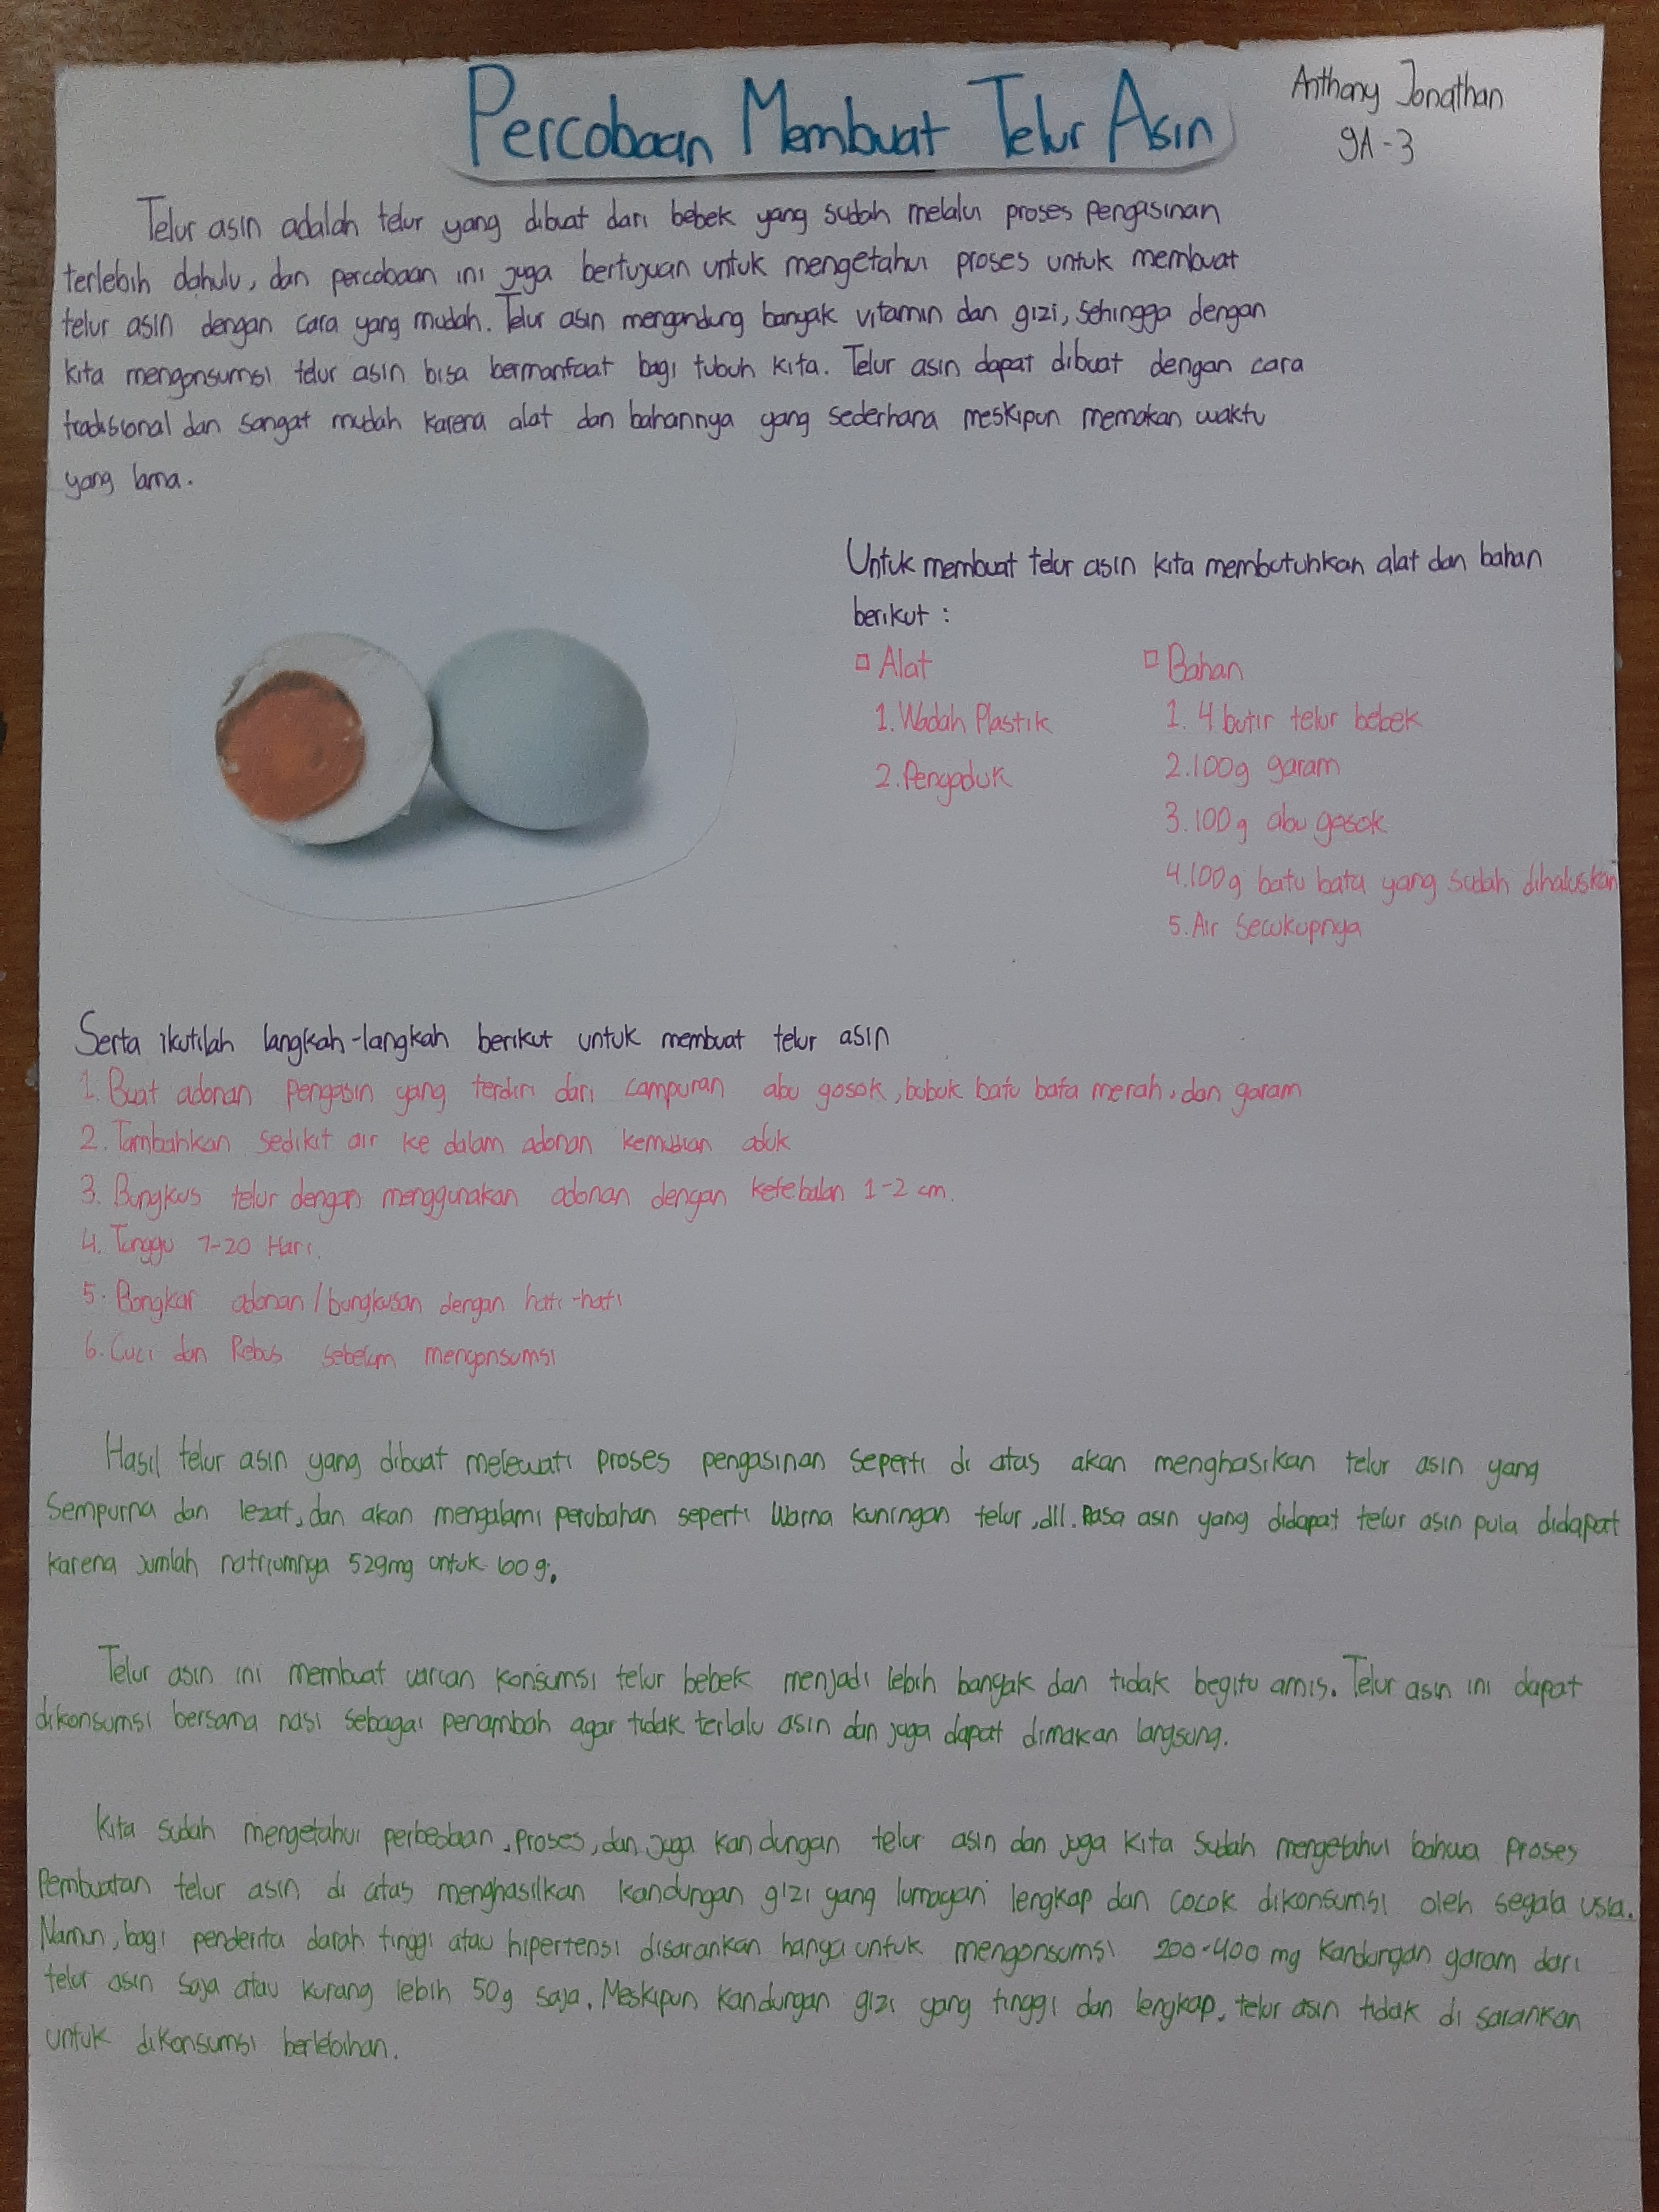 Percobaan Membuat Telur Asin
Anthony Jonathan
9A-3
Telur asin adalah telur yang dibuat dari bebek yang sudah melalui proses pengasinan
terlebih dahulu, dan percobaan ini juga bertujuan untuk mengetahui proses untuk membuat
telur asin dengan cara yang mudah. Telur asin mengandung banyak vitamin dan gizi, sehingga dengan
kita mengonsumsi telur asin bisa bermanfaat bagi tubuh kita. Telur asin dapat dibuat dengan cara
tradisional dan sangat mudah karena alat dan bahannya yang sederhana meskipun memakan waktu
yang lama.
Untuk membuat telur asin kita membutuhkan alat dan bahan
berikut :
Alat
1. Wadah Plastik
2. Pengaduk
Bahan
1. 4 butir telur bebek
2. 100g garam
3. 100g abu gosok
4. 100g batu bata yang sudah dihaluskan
5. Air Secukupnya
Serta ikutilah langkah-langkah berikut untuk membuat telur asin
1. Buat adonan pengasin yang terdiri dari campuran abu gosok, bubuk batu bata merah, dan garam
2. Tambahkan sedikit air ke dalam adonan kemudian aduk
3. Bungkus telur dengan menggunakan adonan dengan ketebalan 1-2 cm.
4. Tunggu 7-20 Hari.
5. Bongkar adonan/bungkusan dengan hati-hati
6. Cuci dan Rebus sebelum mengonsumsi
Hasil telur asin yang dibuat melewati proses pengasinan seperti di atas akan menghasikan telur asin yang
Sempurna dan lezat, dan akan mengalami perubahan seperti Warna kuningan telur, dll. Rasa asin yang didapat telur asin pula didapat
karena jumlah natriumnya 529mg untuk 100g.
Telur asin ini membuat varian konsumsi telur bebek menjadi lebih banyak dan tidak begitu amis. Telur asin ini dapat
dikonsumsi bersama nasi sebagai penambah agar tidak terlalu asin dan juga dapat dimakan langsung.
Kita sudah mengetahui perbedaan, proses, dan juga kandungan telur asin dan juga kita sudah mengetahui bahwa proses
Pembuatan telur asin di atas menghasilkan kandungan gizi yang lumayan lengkap dan cocok dikonsumsi oleh segala usia.
Namun, bagi penderita darah tinggi atau hipertensi disarankan hanya untuk mengonsumsi 200-400 mg kandungan garam dari
telur asin saja atau kurang lebih 50g saja. Meskipun kandungan gizi yang tinggi dan lengkap, telur asin tidak di sarankan
untuk dikonsumsi berlebihan.